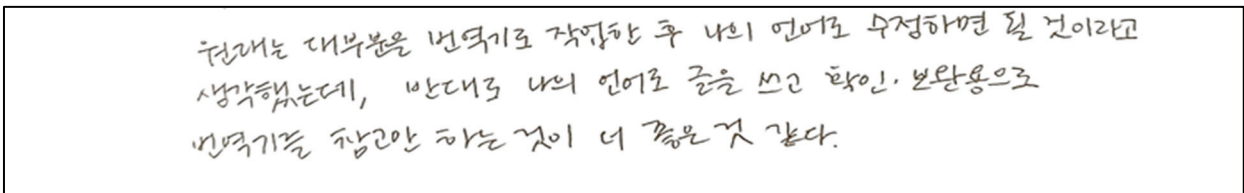 원래는 대부분은 번역기로 작업한 후 나의 언어로 수정하면 될 것이라고
생각했는데, 반대로 나의 언어로 글을 쓰고 확인·보완용으로
번역기를 참고만 하는 것이 더 좋은 것 같다.